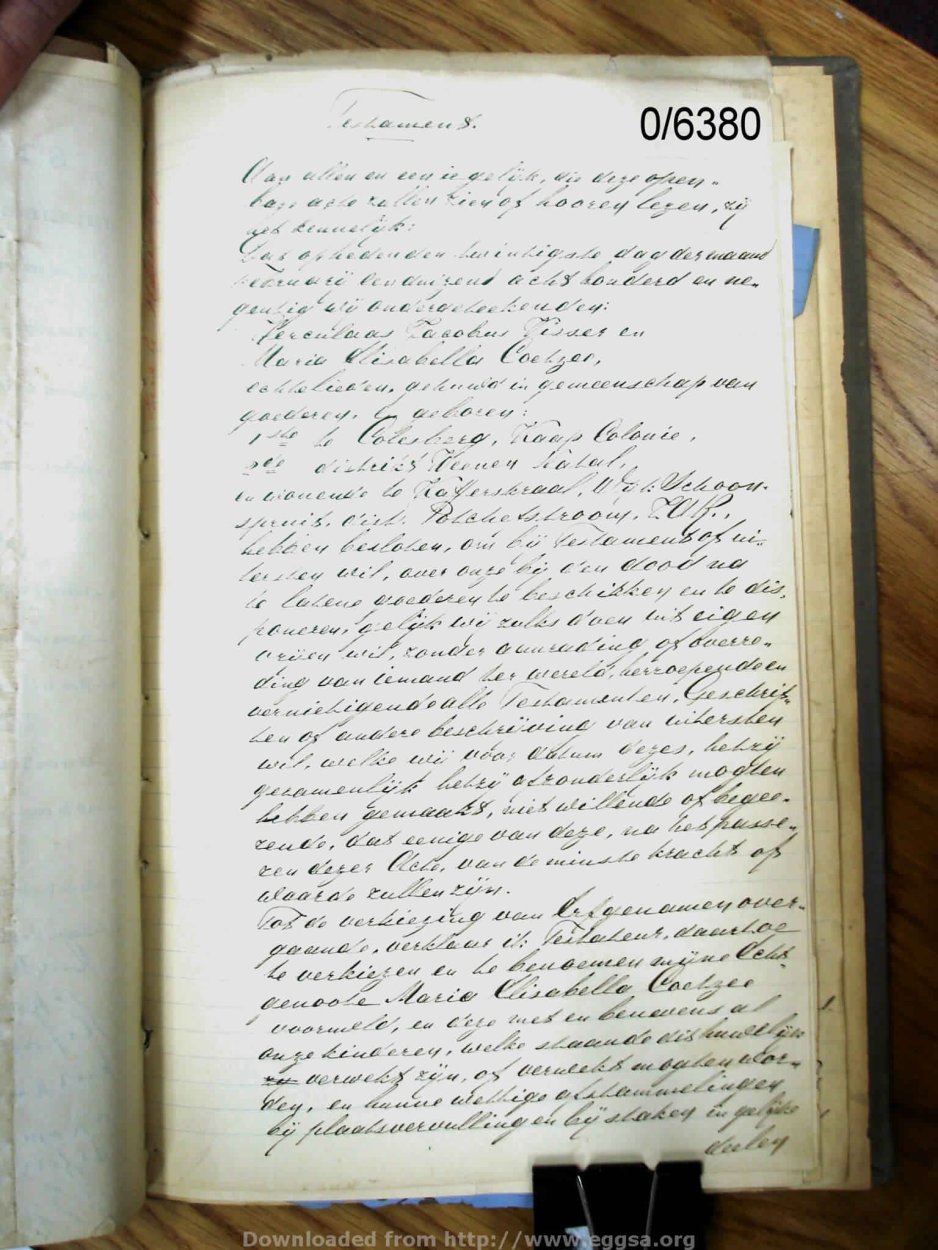 Testament.
0/6380
Aan allen en een iegelijk, die deze open-
bare acte zullen zien of hooren lezen, zij
het kennelijk:
Dat op heden den twintigste dag der maand
Februarij een duizend acht honderd en ne-
gentig wij ondergeteekenden:
Herculaas Jacobus Visser en
Maria Elisabella Coetzee,
echtelieden, gehuwd in gemeenschap van
goederen, en geboren:
1ste te Colesberg, Kaap Colonie,
2de district Weenen Natal,
en wonende te Kafferskraal, Wyk Schoon-
spruit, dist. Potchefstroom, Z.A.R.,
hebben besloten, om bij Testament of ui-
tersten wil, over onze bij den dood na
te latene goederen te beschikken en te dis-
poneren, gelijk wij zulks doen uit eigen
vrijen wil, zonder aanrading of overre-
ding van iemand ter wereld, herroepende en
vernietigende alle Testamenten, Geschrif-
ten of andere beschrijving van uitersten
wil, welke wij voor datum dezes, hetzij
gezamenlijk hetzij afzonderlijk mogten
hebben gemaakt, niet willende of begee-
rende, dat eenige van deze, na het passe-
ren dezer Acte, van de minste kracht of
waarde zullen zijn.
Tot de verkiezing van Erfgenamen over-
gaande, verklaar ik Testateur, daartoe
te verkiezen en te benoemen mijne Echt-
genoote Maria Elisabella Coetzee
voormeld, en deze met en benevens al
onze kinderen, welke staande dit huwelijk
verwekt zijn, of verwekt mogten wor-
den, en hunne wettige afstammelingen
bij plaatsvervulling en bij staken in gelijke
deelen
Downloaded from http://www.eggsa.org